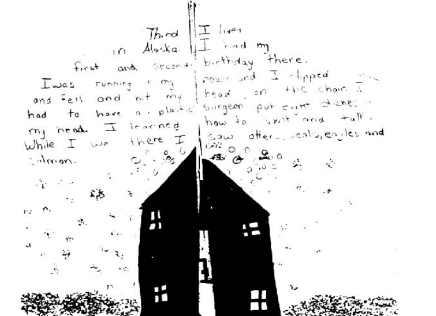 Third I lived
in Alaska. I had my
first and second birthday there.
I was running in my house and I slipped
and fell and hit my head on the chair I
had to have a plastic surgeon put eight stiches
my head. I learned how to and talk.
While I was there I saw otters, seals, eagles and
salmon.